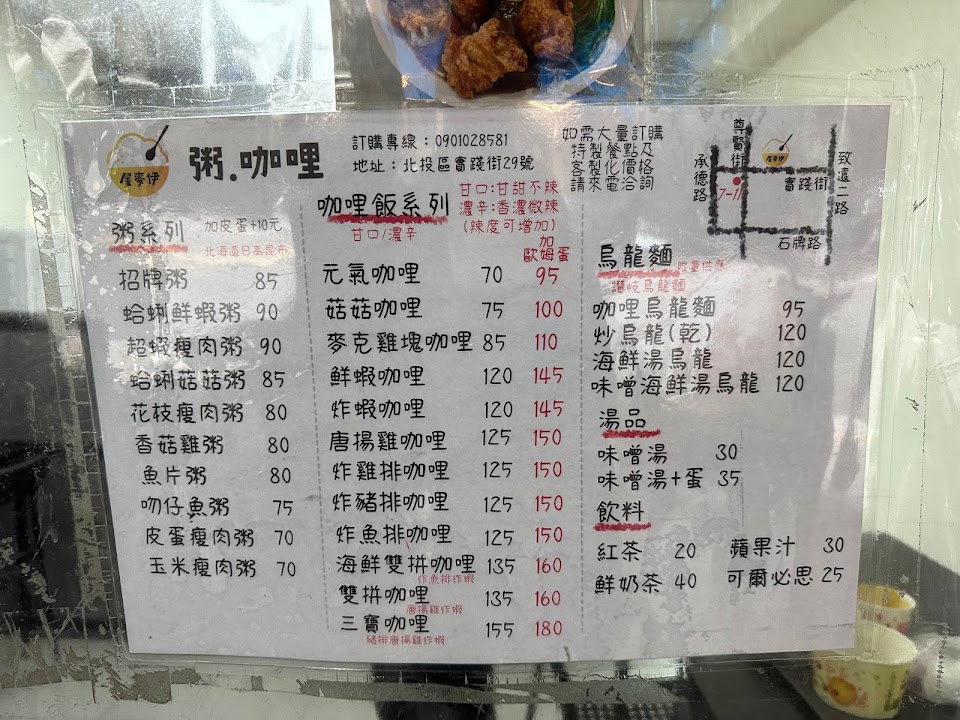 屋麥伊
粥.咖哩
訂購專線：0901028581
地址：北投區實踐街29號
如需大量訂購
特製餐點及
客製化價格
請來電洽詢
尊賢街
承德路
7-11
屋麥伊
實踐街
致遠二路
石牌路
粥系列 加皮蛋+10元
北海道日高昆布
招牌粥 85
蛤蜊鮮蝦粥 90
超蝦瘦肉粥 90
蛤蜊菇菇粥 85
花枝瘦肉粥 80
香菇雞粥 80
魚片粥 80
吻仔魚粥 75
皮蛋瘦肉粥 70
玉米瘦肉粥 70
咖哩飯系列
甘口/濃辛
甘口:甘甜不辣
濃辛:香濃微辣
(辣度可增加)
加
歐姆蛋
元氣咖哩 70 95
菇菇咖哩 75 100
麥克雞塊咖哩 85 110
鮮蝦咖哩 120 145
炸蝦咖哩 120 145
唐揚雞咖哩 125 150
炸雞排咖哩 125 150
炸豬排咖哩 125 150
炸魚排咖哩 125 150
海鮮雙拼咖哩 135 160
炸魚排炸蝦
雙拼咖哩 135 160
唐揚雞炸蝦
三寶咖哩 155 180
豬排唐揚雞炸蝦
烏龍麵 限量供應
讚岐烏龍麵
咖哩烏龍麵 95
炒烏龍(乾) 120
海鮮湯烏龍 120
味噌海鮮湯烏龍 120
湯品
味噌湯 30
味噌湯+蛋 35
飲料
紅茶 20 蘋果汁 30
鮮奶茶 40 可爾必思 25